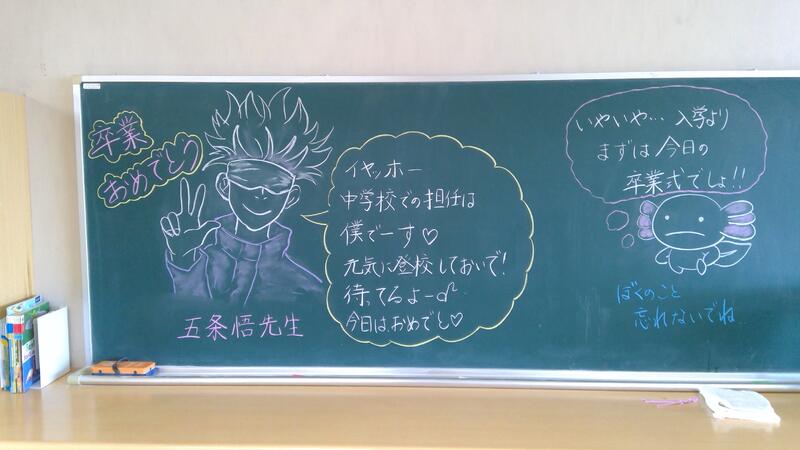 卒業
おめでとう
イヤッホー
中学校での担任は
僕でーす♡
元気に登校しておいで!
待ってるよー♂
今日はおめでとし♡
五条悟先生
いやいや… 入学より
まずは今日の
卒業式でしょ!!
ぼくのこと
忘れないでね